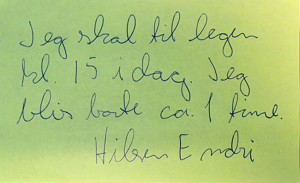 Jeg skal til legen
kl. 15 i dag. Jeg
blir borte ca. 1 time.
Hilsen Endri